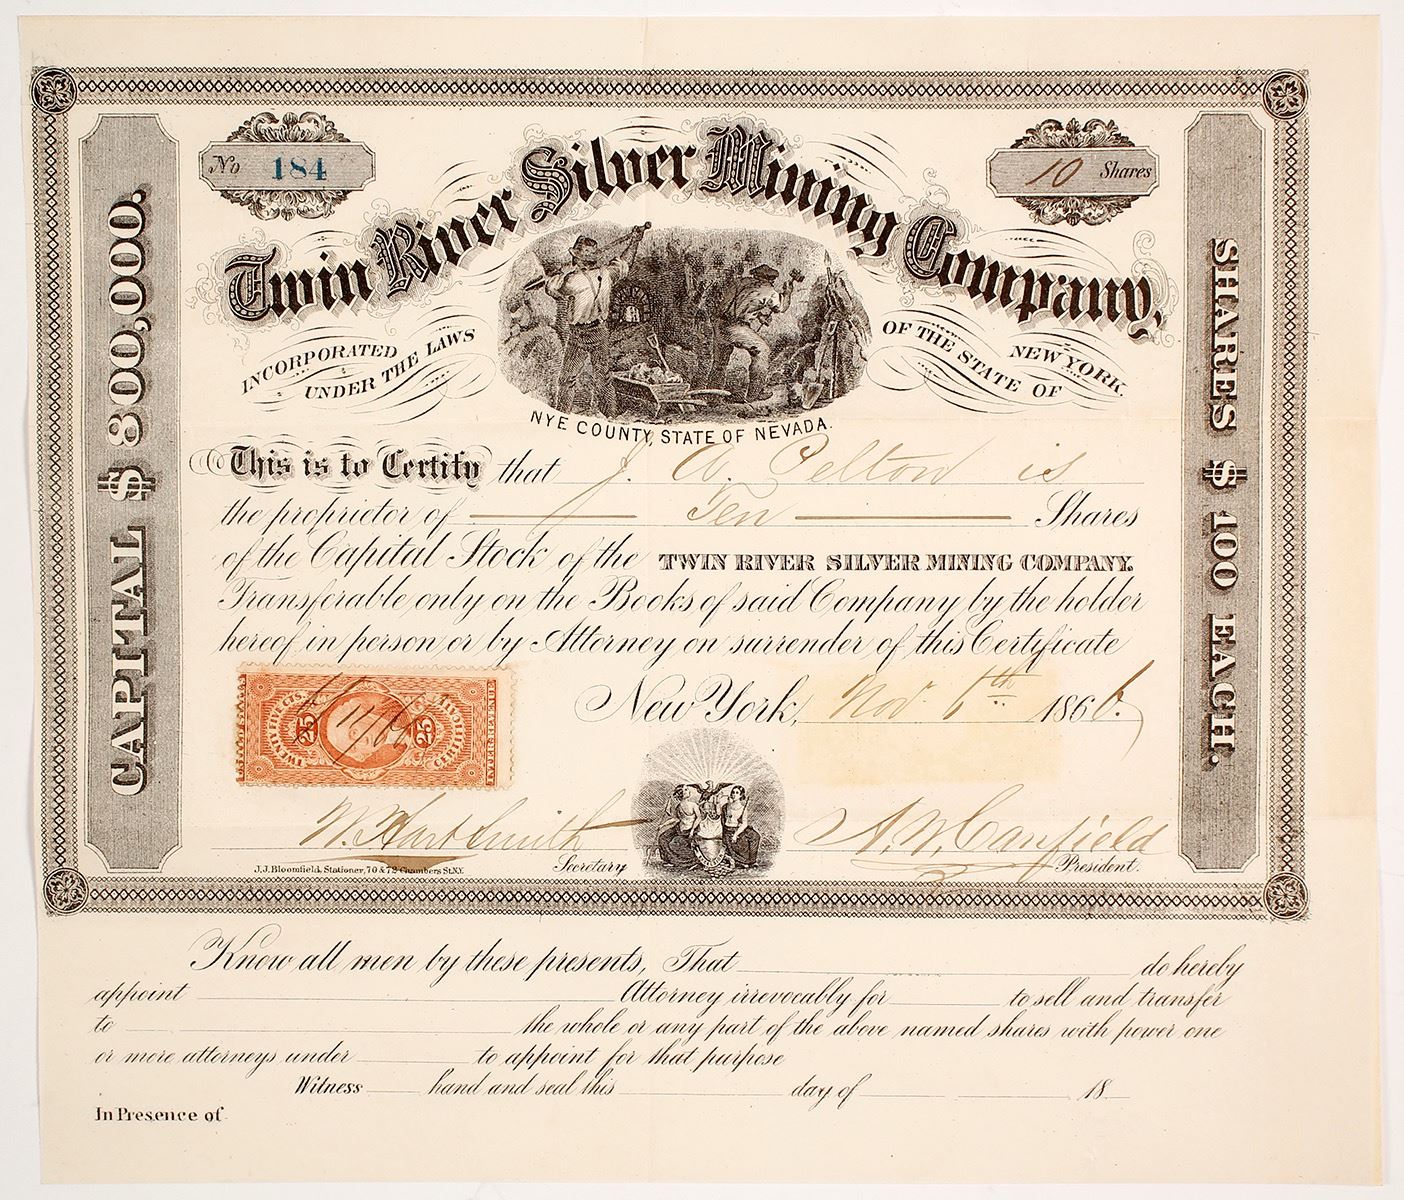 No 184
10 Shares
Twin River Silver Mining Company,
INCORPORATED UNDER THE LAWS OF THE STATE OF NEW YORK.
NYE COUNTY, STATE OF NEVADA.
CAPITAL $800,000.
SHARES $100 EACH.
This is to Certify that J. W. Pelton is
the proprietor of Ten Shares
of the Capital Stock of the TWIN RIVER SILVER MINING COMPANY.
Transferable only on the Books of said Company by the holder
hereof in person or by Attorney on surrender of this Certificate
New York, Nov 6th 1866.
TWENTY FIVE CTS.
25 25
11/66
W. Hart Smith
Secretary
A. W. Canfield
President.
J.J. Bloomfield, Stationer, 70 & 72 Chambers St. N.Y.
Know all men by these presents, That do hereby
appoint Attorney irrevocably for to sell and transfer
to the whole or any part of the above named shares with power one
or more attorneys under to appoint for that purpose
Witness hand and seal this day of 18
In Presence of